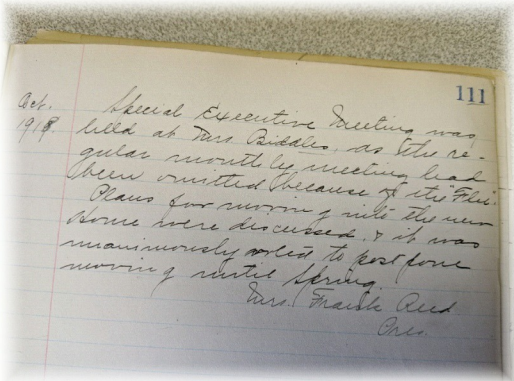 111
Oct. 1918. Special Executive Meeting was
held at Mrs Biddles, as the re-
gular monthly meeting had
been omitted because of the "Flu".
Plans for moving into the new
Home were discussed. & it was
unanimously voted to postpone
moving until Spring.
Mrs. Frank
Pres.